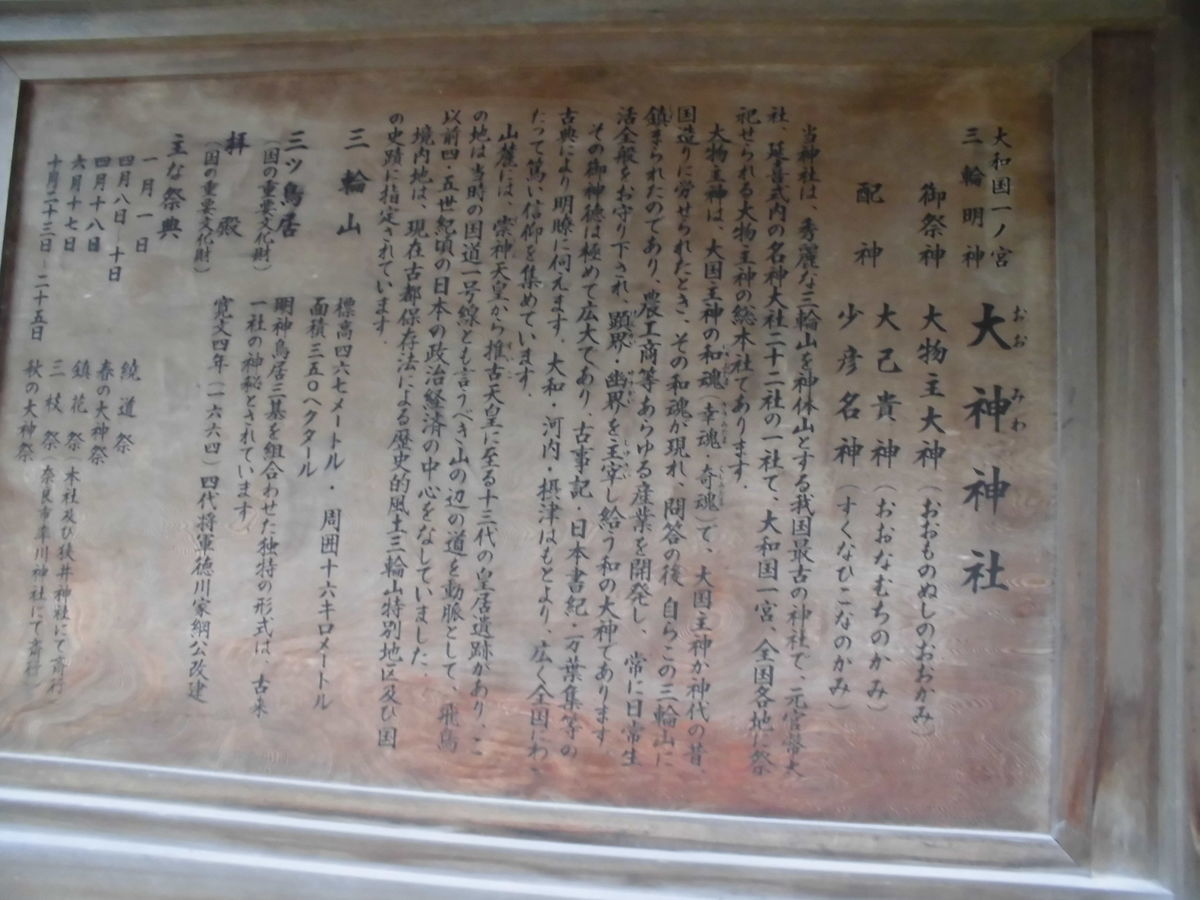 大和国一ノ宮
三輪明神
大神神社
おおみわ
御祭神 大物主大神（おおものぬしのおおかみ）
配神 大己貴神（おおなむちのかみ）
少彦名神（すくなひこなのかみ）
当神社は、秀麗な三輪山を神体山とする我国最古の神社で、元官幣大
社、延喜式内の名神大社二十二社の一社て、大和国一宮、全国各地に祭
祀せられる大物主神の総本社であります。
大物主神は、大国主神の和魂（幸魂・奇魂）て、大国主神か神代の昔、
国造りに労せられたとき、その和魂が現れ、問答の後 自らこの三輪山に
鎮まられたのであり、農工商等あらゆる産業を開発し、常に日常生
活全般をお守り下され、顕界・幽界を主宰し給う和の大神であります
その御神徳は極めて広大であり、古事記・日本書紀・万葉集等の
古典により明瞭に伺えます。大和・河内・摂津はもとより、広く全国にわ
たって篤い信仰を集めています。
山麓には、崇神天皇から推古天皇に至る十三代の皇居遺跡があり、こ
の地は当時の国道一号線とも言うべき山の辺の道を動脈として、飛鳥
以前四・五世紀頃の日本の政治経済の中心をなしていました。
境内地は、現在古都保存法による歴史的風土三輪山特別地区及び国
の史蹟に指定されています。
三輪山 標高四六七メートル・周囲十六キロメートル
面積三五〇ヘクタール
三ツ鳥居 明神鳥居三基を組合わせた独特の形式は、古来
（国の重要文化財） 一社の神秘とされています
拝殿 寛文四年（一六六四）四代将軍徳川家綱公改建
（国の重要文化財）
主な祭典
一月一日 繞道祭
四月八日―十日 春の大神祭
四月十八日 鎮花祭（本社及び狭井神社にて斎行
六月十七日 三枝祭（奈良市率川神社にて斎行）
十月二十三日―二十五日 秋の大神祭